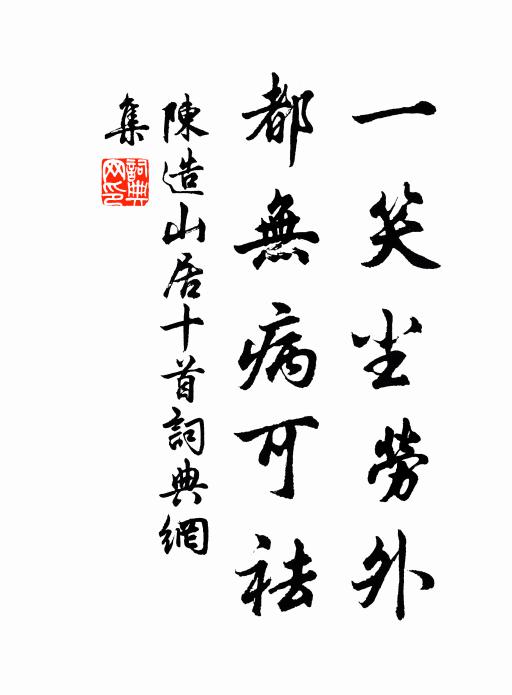 一笑尘勞外
都無病可祛
陳造山居十首詞典網
集
詞典
网印